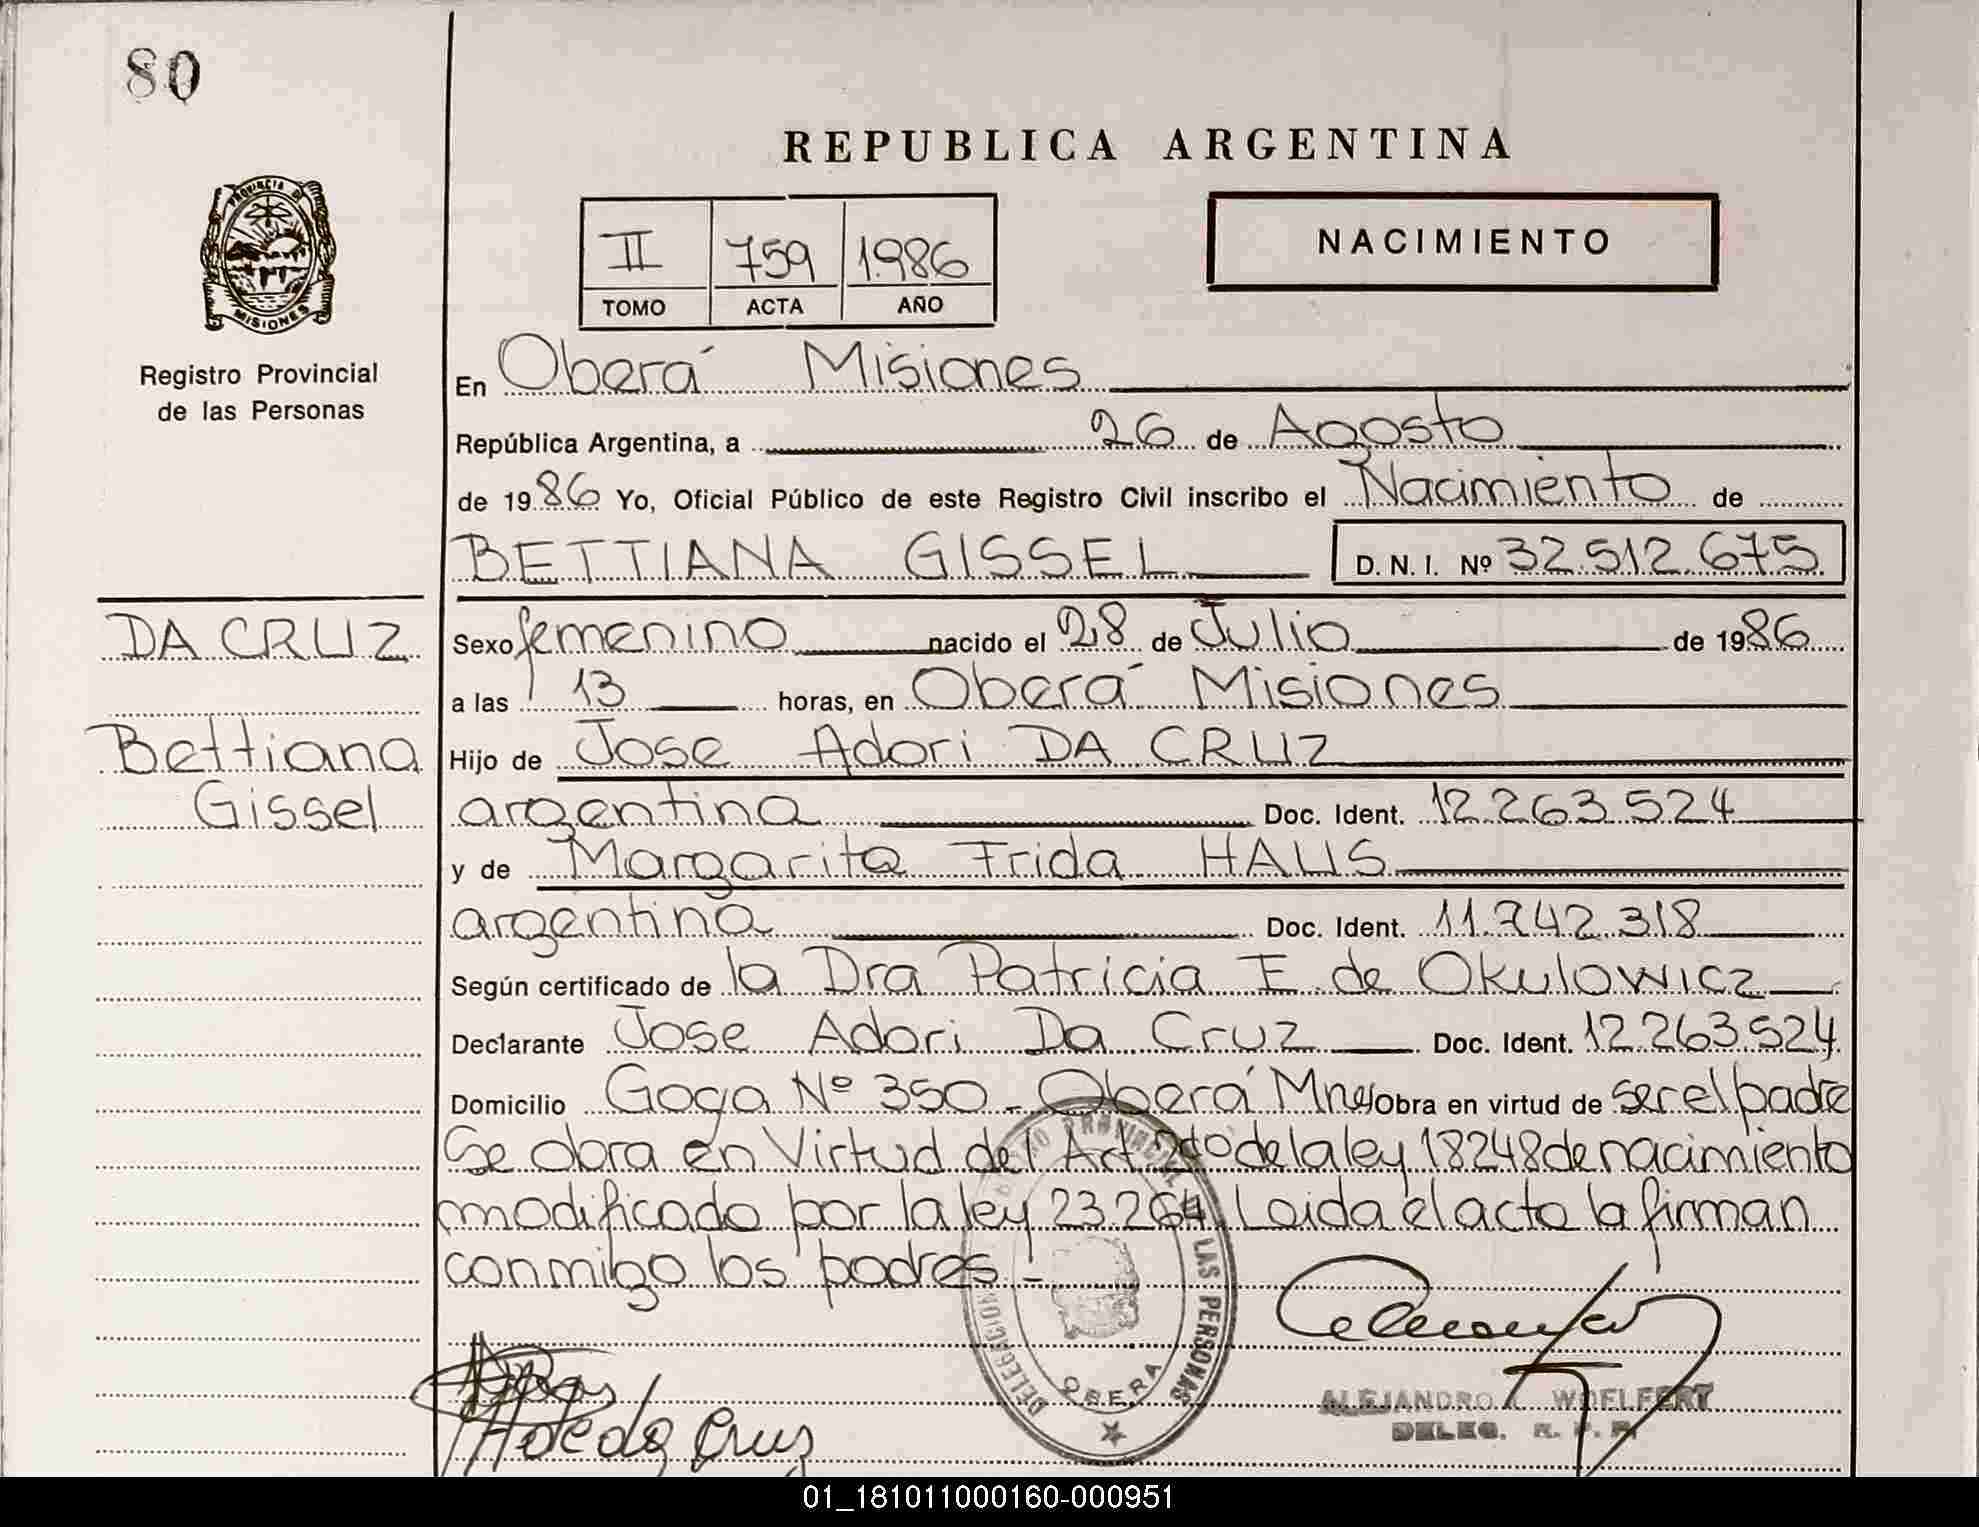 80
REPUBLICA ARGENTINA
PROVINCIA DE
MISIONES
II 759 1986
TOMO ACTA AÑO
NACIMIENTO
Registro Provincial
de las Personas
En Oberá Misiones
República Argentina, a 26 de Agosto
de 1986 Yo, Oficial Público de este Registro Civil inscribo el Nacimiento de
BETTIANA GISSEL D. N. I. Nº 32.512.675
DA CRUZ
Bettiana
Gissel
Sexo femenino nacido el 28 de Julio de 1986
a las 13 horas, en Oberá Misiones
Hijo de Jose Adori DA CRUZ
argentina Doc. Ident. 12.263.524
y de Margarita Frida HAUS
argentina Doc. Ident. 11.742.318
Según certificado de la Dra Patricia E de Okulowicz
Declarante Jose Adori Da Cruz Doc. Ident. 12.263.524
Domicilio Goya Nº 350 - Oberá Mnes Obra en virtud de ser el padre
Se obra en Virtud del Art 2do de la ley 18248 de nacimiento
modificado por la ley 23.264 Leida el acta la firman
conmigo los padres.-
DELEGACION REGISTRO PROVINCIAL DE LAS PERSONAS
OBERA
da Cruz
ALEJANDRO WOELFERT
DELEG. R. P. P.
01_181011000160-000951